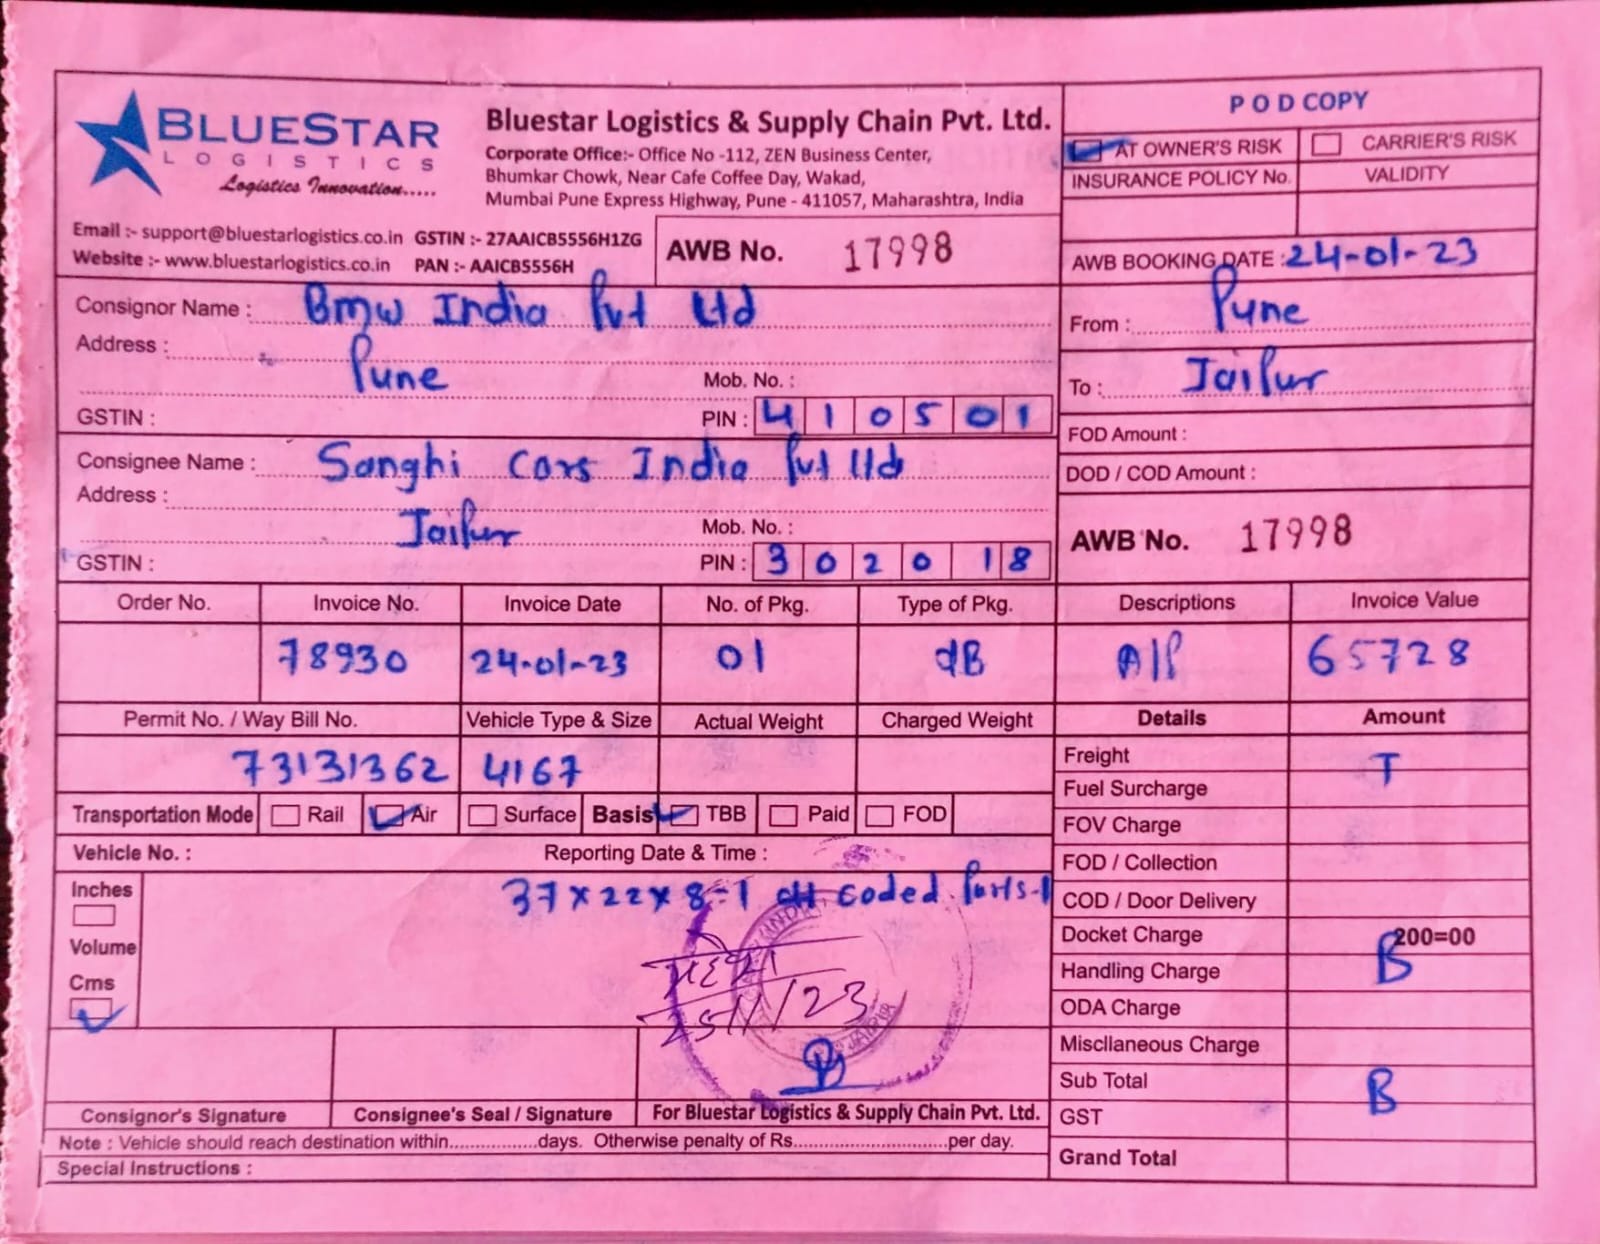 BLUESTAR
LOGISTICS
Logistics Innovation.....
Bluestar Logistics & Supply Chain Pvt. Ltd.
Corporate Office:- Office No -112, ZEN Business Center,
Bhumkar Chowk, Near Cafe Coffee Day, Wakad,
Mumbai Pune Express Highway, Pune - 411057, Maharashtra, India
Email :- support@bluestarlogistics.co.in GSTIN :- 27AAICB5556H1ZG
Website :- www.bluestarlogistics.co.in PAN :- AAICB5556H
AWB No. 17998
POD COPY
AT OWNER'S RISK CARRIER'S RISK
INSURANCE POLICY No. VALIDITY
AWB BOOKING DATE : 24-01-23
Consignor Name : Bmw India Pvt Ltd
From : Pune
Address : Pune
Mob. No. :
To : Jaipur
GSTIN : PIN : 410501
FOD Amount :
Consignee Name : Sanghi Cars India Pvt Ltd
DOD / COD Amount :
Address : Jaipur
Mob. No. :
AWB No. 17998
GSTIN : PIN : 302018
Order No. Invoice No. Invoice Date No. of Pkg. Type of Pkg. Descriptions Invoice Value
78930 24-01-23 01 dB A/P 65728
Permit No. / Way Bill No. Vehicle Type & Size Actual Weight Charged Weight Details Amount
73131362 4167
Freight T
Fuel Surcharge
Transportation Mode Rail Air Surface Basis TBB Paid FOD
FOV Charge
Vehicle No. : Reporting Date & Time :
FOD / Collection
Inches
37x22x8=1 dt coded Parts-1
COD / Door Delivery
Docket Charge 200=00
Volume
B
Handling Charge
Cms
25/1/23
JAIPUR
ODA Charge
Miscllaneous Charge
Sub Total B
Consignor's Signature Consignee's Seal / Signature For Bluestar Logistics & Supply Chain Pvt. Ltd.
GST
Note : Vehicle should reach destination within...............days. Otherwise penalty of Rs..........................per day.
Grand Total
Special Instructions :